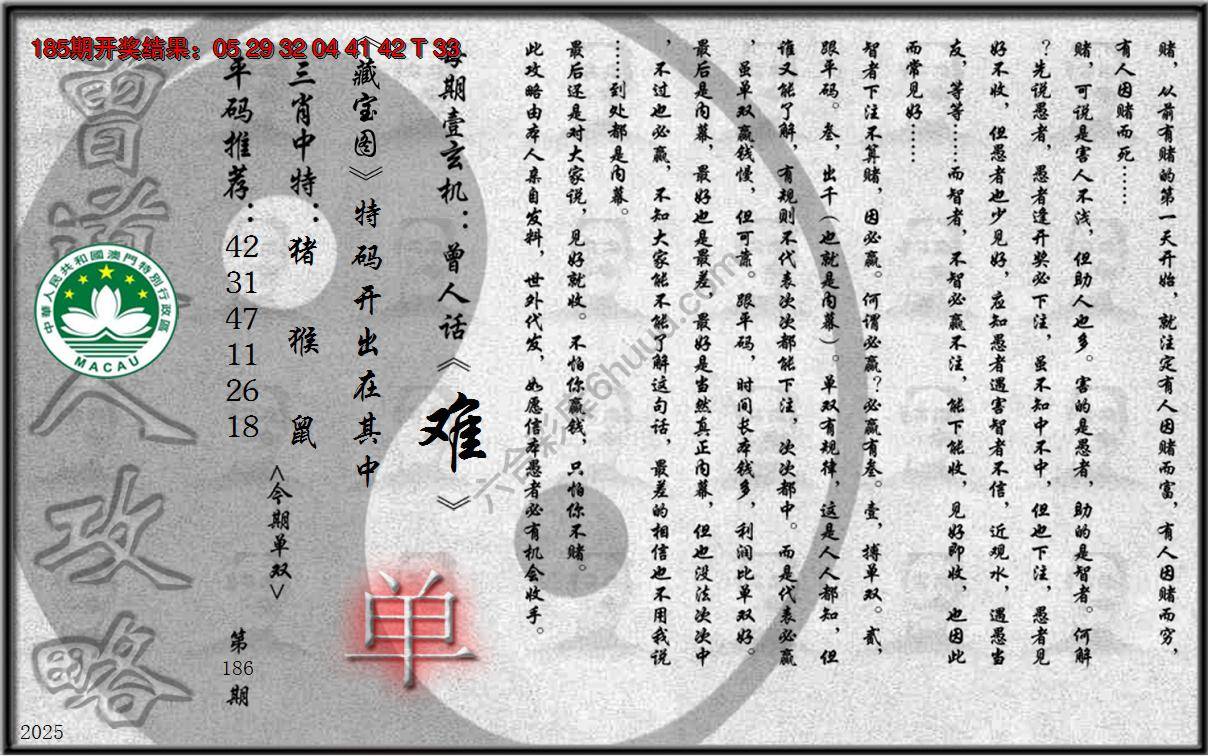 185期开奖结果：05 29 32 04 41 42 T 33
赌，从前有赌的第一天开始，就注定有人因赌而富，有人因赌而穷，
有人因赌而死……
赌，可说是害人不浅，但助人也多。害的是愚者，助的是智者。何解
？先说愚者，愚者逢开奖必下注，虽不知中不中，但也下注，愚者见
好不收，但愚者也少见好，应知愚者遇害智者不信，近观水，遇愚当
友，等等……而智者，不智必赢不注，能下能收，见好即收，也因此
而常见好……
智者下注不算赌，因必赢。何谓必赢？必赢有叁。壹，搏单双。贰，
跟平码。叁，出千（也就是内幕）。单双有规律，这是人人都知，但
谁又能了解，有规则不代表次次都能下注，次次都中。而是代表必赢
，虽单双赢钱慢，但可靠。跟平码，时间长本钱多，利润比单双好。
最后是内幕，最好也是最差，最好是当然真正内幕，但也没法次次中
，不过也必赢，不知大家能不能了解这句话，最差的相信也不用我说
……到处都是内幕。
最后还是对大家说，见好就收。不怕你赢钱，只怕你不赌。
此攻略由本人亲自发料，世外代发，如愿信本愚者必有机会收手。
每期壹玄机：曾人话《难》
《藏宝图》特码开出在其中
单
三肖中特：猪 猴 鼠
<今期单双>
平码推荐：
42
31
47
11
26
18
第
186
期
曾道人攻略
中華人民共和國澳門特別行政區
MACAU
六合彩库6huuu.com
2025